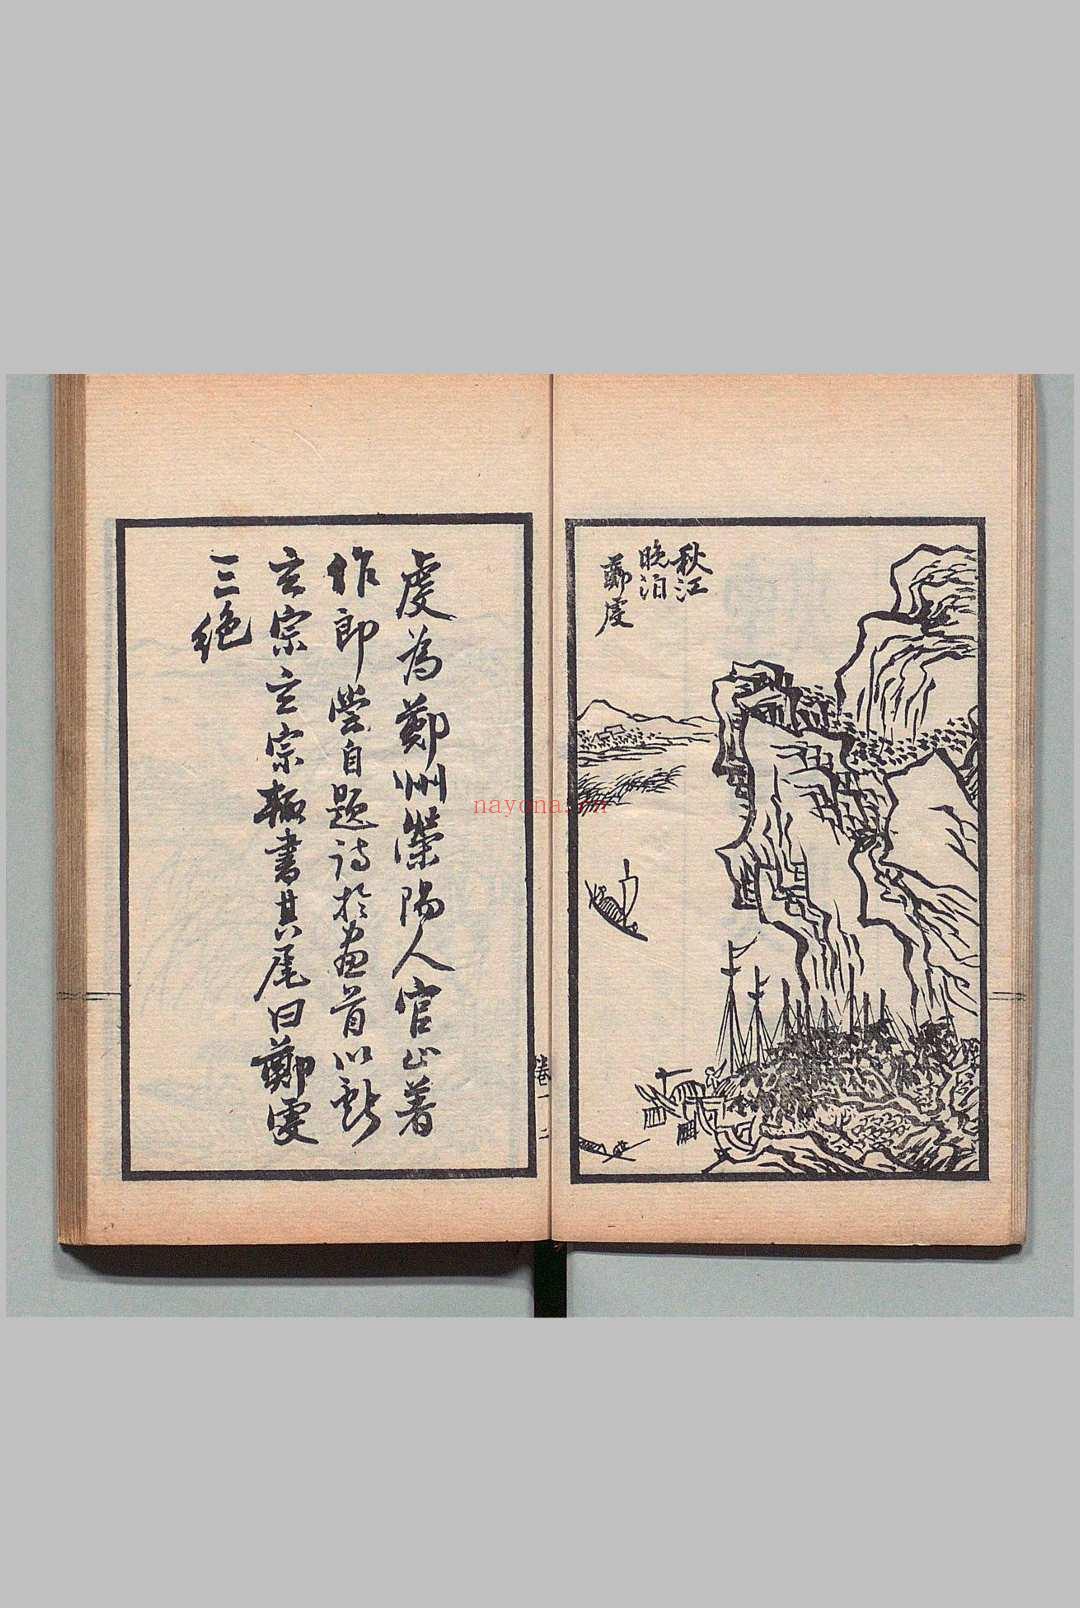 秋江
晚泊
鄭虔
虔為鄭州滎陽人官止著
作郎嘗自題詩於畫首以獻
玄宗玄宗輒書其尾曰鄭虔
三絕
卷一
二
nayona.cn